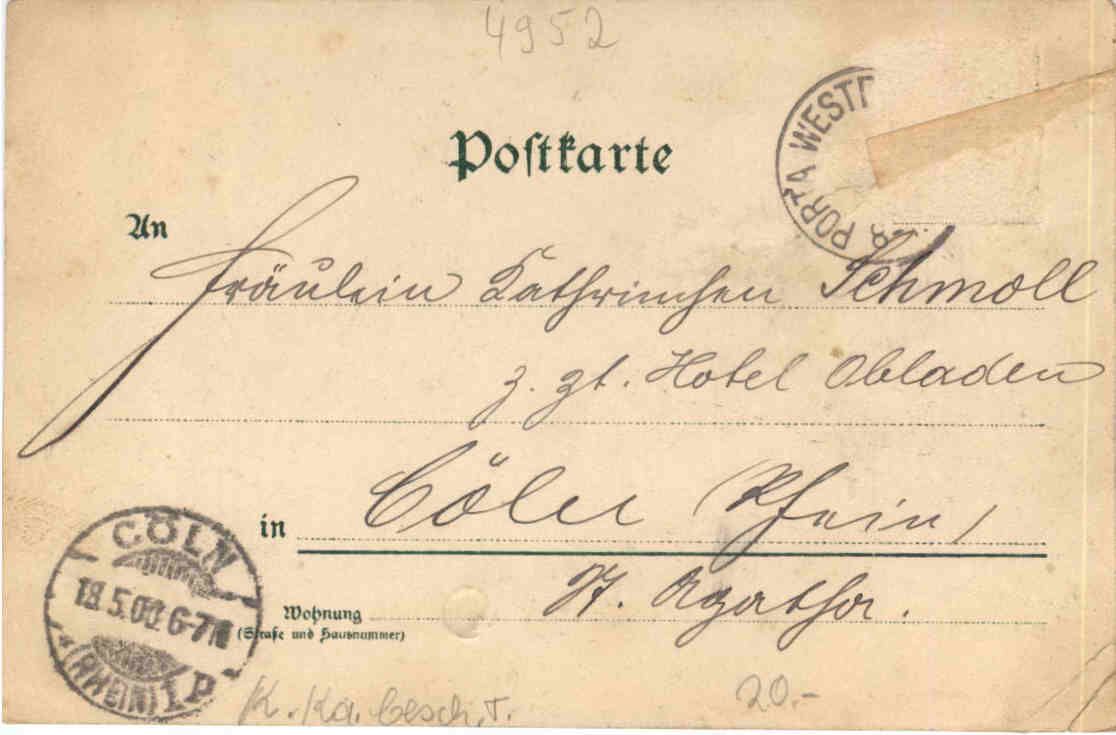 4952
Postkarte
PORTA WESTF
An
Fräulein Kathrinchen Schmoll
z. Zt. Hotel Obladen
in Cöln (Rhein)
St. Agatha.
Wohnung
(Straße und Hausnummer)
CÖLN
18.5.00 6-7N
(RHEIN) 1P
K. Ka. besch.
20.-